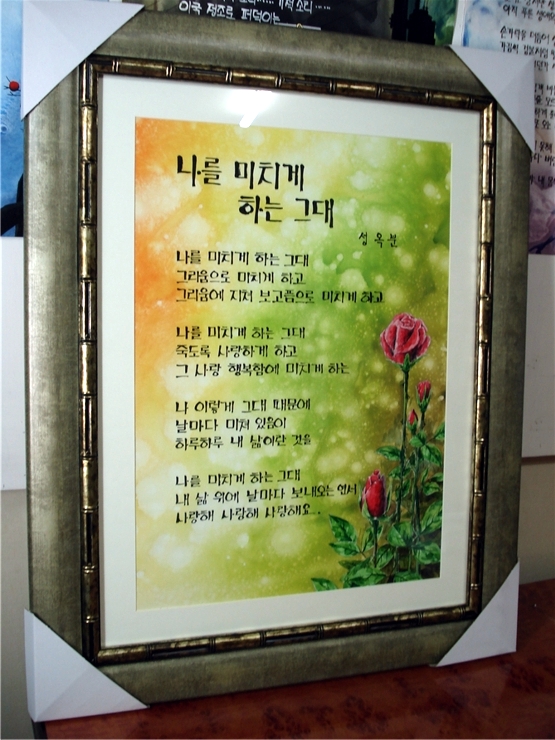 이국 정조로 퍼덕이는
나를 미치게
하는 그대
성옥분
나를 미치게 하는 그대
그리움으로 미치게 하고
그리움에 지쳐 보고픔으로 미치게 하고
나를 미치게 하는 그대
죽도록 사랑하게 하고
그 사랑 행복함에 미치게 하는
나 이렇게 그대 때문에
날마다 미쳐 있음이
하루하루 내 삶이란 것을
나를 미치게 하는 그대
내 삶 위에 날마다 보내오는 연서
사랑해 사랑해 사랑해요..